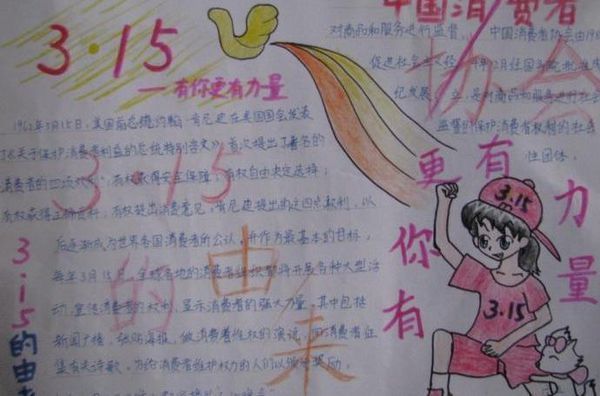 3·15
——有你更有力量
1962年3月15日,美国前总统约翰·肯尼迪在美国国会发表
了《关于保护消费者利益的总统特别咨文》,首次提出了著名的
消费者的四项权利:有权获得安全保障;有权自由决定选择;
有权获得正确资料;有权提出消费意见。肯尼迪提出的这四点权利,以
后逐渐成为世界各国消费者所公认,并作为最基本的目标。
每年3月15日,全球各地的消费者组织都将开展各种大型活
动,宣传消费者的权利,显示消费者的强大力量。其中包括
新闻广播、张贴海报、做消费者维权的演说、向消费者征
集有关诗歌、为给消费者维护权力的人们以颁发奖励。
3·15的由来
3·15的由
中国消费者
协会
对商品和服务进行监督
中国消费者协会由19
促进社会主义经
年12月经国务院批准成
化发展
立,是对商品和服务进行社会
监督的保护消费者权利的社会
性团体。
你有
更有力量
3.15
3.15